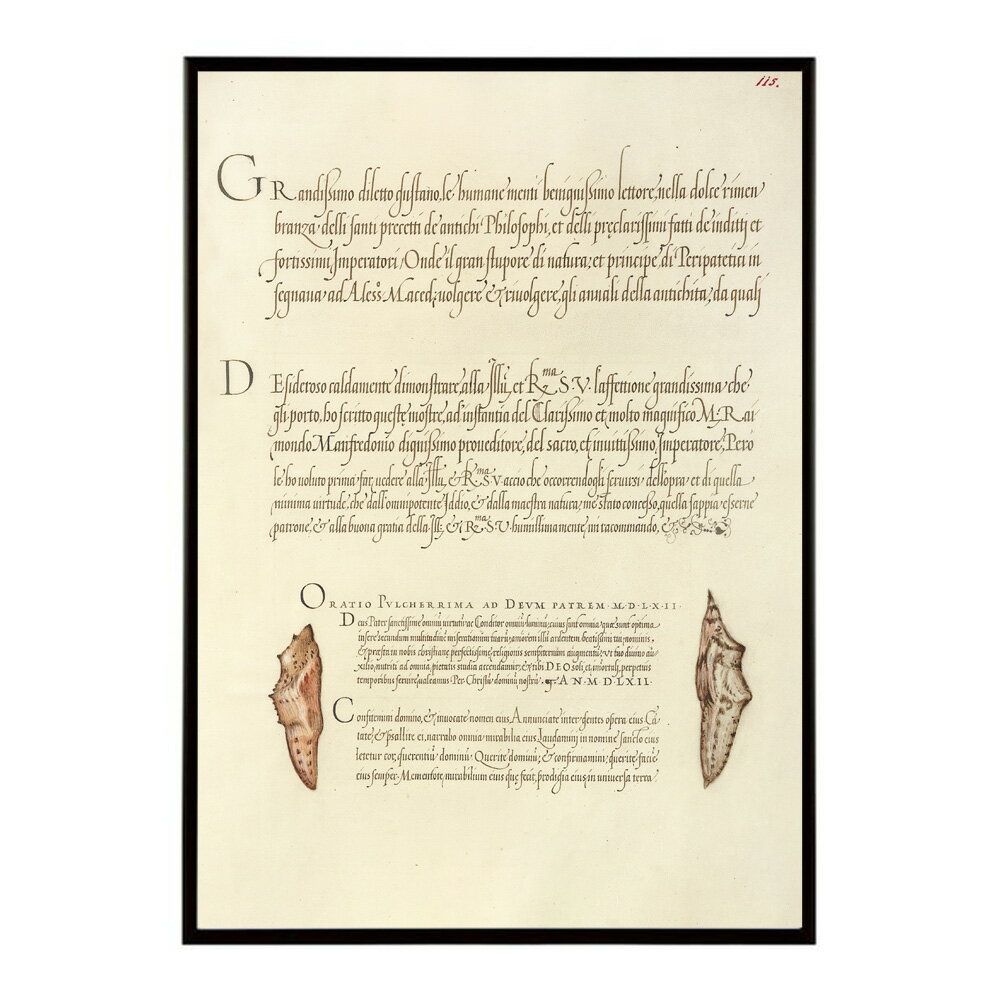 115.
GRandissimo diletto gustano, le humane menti benignissimo lettore, nella dolce rimen
branza delli santi precetti de antichi Philosophi, et delli pręclarissimi fatti de inditti et
fortissimi Imperatori, Onde il gran stupore di natura, et principe di Peripatetici in
segnava ad Aless. Maced. volgere & rivolgere, gli annali della antichita, da quali
DEsideroso caldamente dimonstrare, alla Ill, et R.ma S. V. l'affettione grandissima che
gli porto, ho scritto queste mostre, ad instantia del Clarissimo et molto magnifico M. Rai
mondo Manfredonio dignissimo proveditore, del sacro, et invittissimo Imperatore, Pero
le ho voluto prima far vedere alla Ill, & R.ma S. V. accio che occorrendogli servirsi dell'opra, et di quella
minima virtude, che dall'omnipotente Iddio, & dalla maestra natura, me stato concesso, quella sappia esserne
patrone, & alla buona gratia della Ill, & R.ma S. V. humilissimamente, mi racommando, &
ORATIO PVLCHERRIMA AD DEVM PATREM M·D·LX·II·
Deus Pater sanctissime omniū virtutū ac Conditor omniū luminū, cuius sunt omnia, quæ sunt optima
insere secundum multitudinē miserationum tuarū, amorem illū ardentem benissimi tui nominis,
& præsta in nobis christianę perfectissimę religionis sempiternum augmentū, ut tuo divino au-
xilio, nutriti ad omnia pietatis studia accendamur, & tibi DEO soli, et immortali, perpetuis
temporibus servire valeamus Per Christū dominū nostrū. AN·M·D·LXII·
Confitemini domino, & invocate nomen eius, Annunciate inter gentes opera eius Cā
tate, & psallite ei, narrabo omnia mirabilia eius, Laudamini in nomine sancto eius
letetur cor, querentiū dominū Querite dominū, & confirmamini, querite faciē
eius semper. Mementote, mirabilium eius quę fecit, prodigia eius, in universa terra